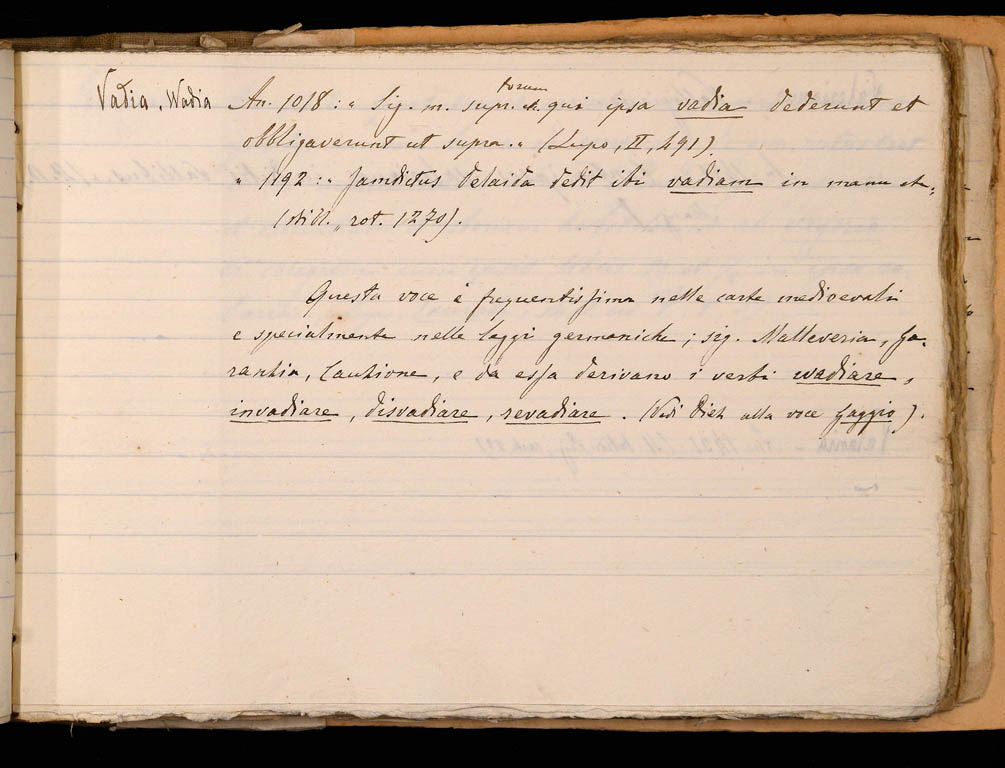 Vadia, Wadia An. 1018 : " Sig. m. supr. torum qui ipsa vadia dederunt et
obbligaverunt ut supra. " (Lupo, II, 491)
" 1192 : " Jamdictus Delaida dedit ibi vadiam in manu etc.
(Bibl., rot. 1270).
Questa voce è frequentissima nelle carte medioevali
e specialmente nelle Leggi germaniche ; sig. Malleveria, Ga-
ranzia, Cauzione, e da essa derivano i verbi wadiare,
invadiare, disvadiare, revadiare. (Vedi Diez alla voce Gaggio).